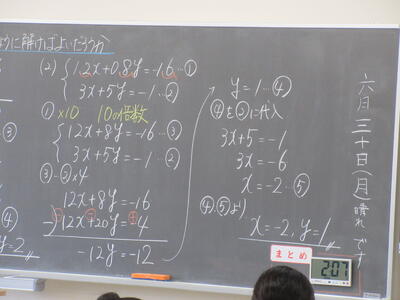 ように解けばよいだろうか
(2) { 1.2x+0.8y=-1.6…①
3x+5y=-1…②
①×10 10の倍数
{ 12x+8y=-16…③
3x+5y=-1…②
③-②×4
12x+8y=-16
-) 12x+20y=-4
-12y=-12
y=1…④
④を②に代入
3x+5=-1
3x=-6
x=-2…⑤
④,⑤より
x=-2, y=1
③
④
y=2
六月三十日(月)晴れ
まとめ
207